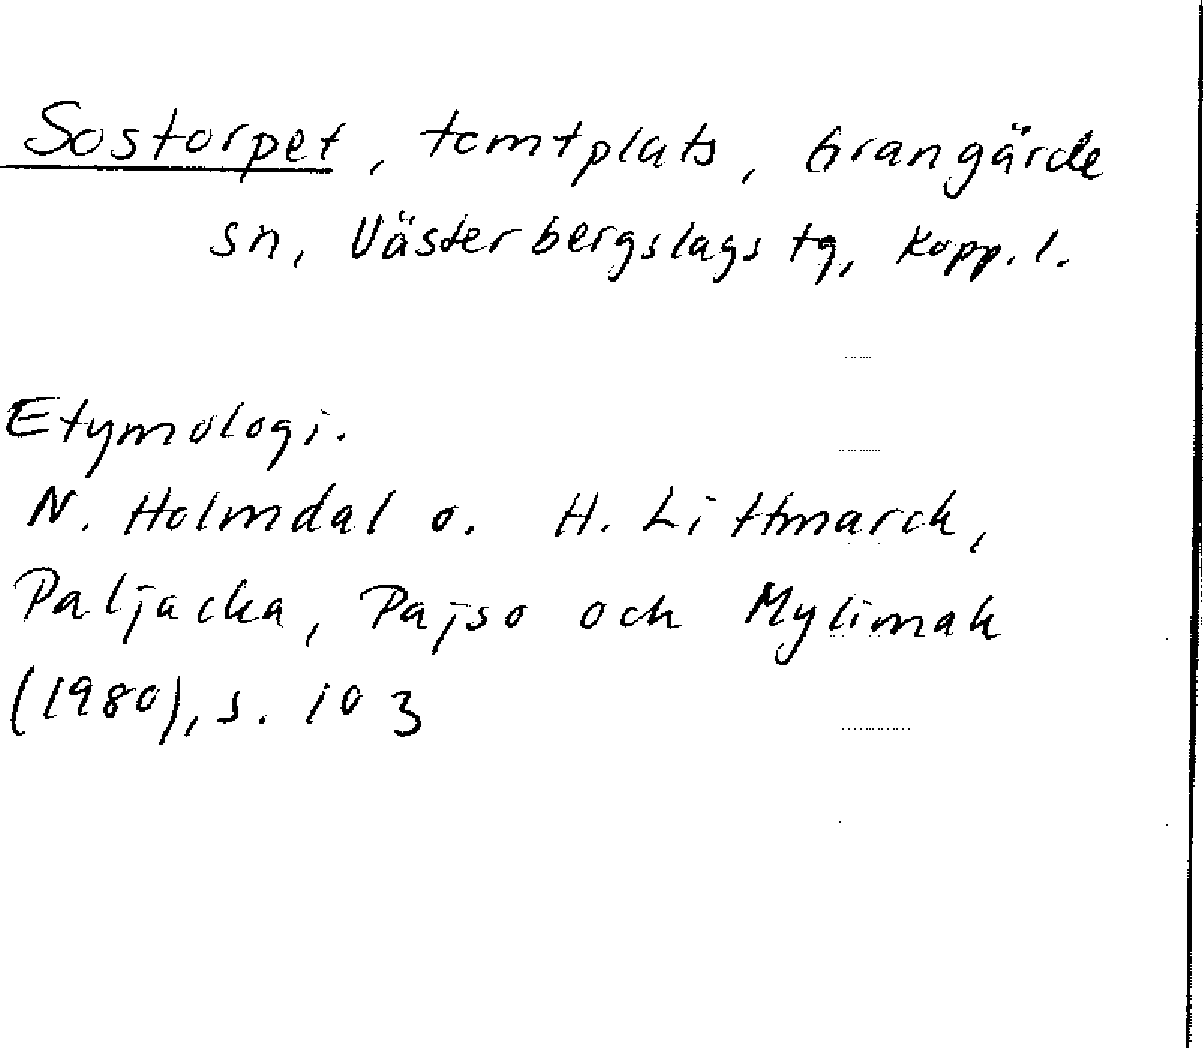 Sostorpet, tomtplats, Grangärde
sn, Västerbergslags tg, Kopp. l.
Etymologi.
N. Holmdal o. H. Littmarck,
Paljacka, Pajso och Mylimak
(1980), s. 103